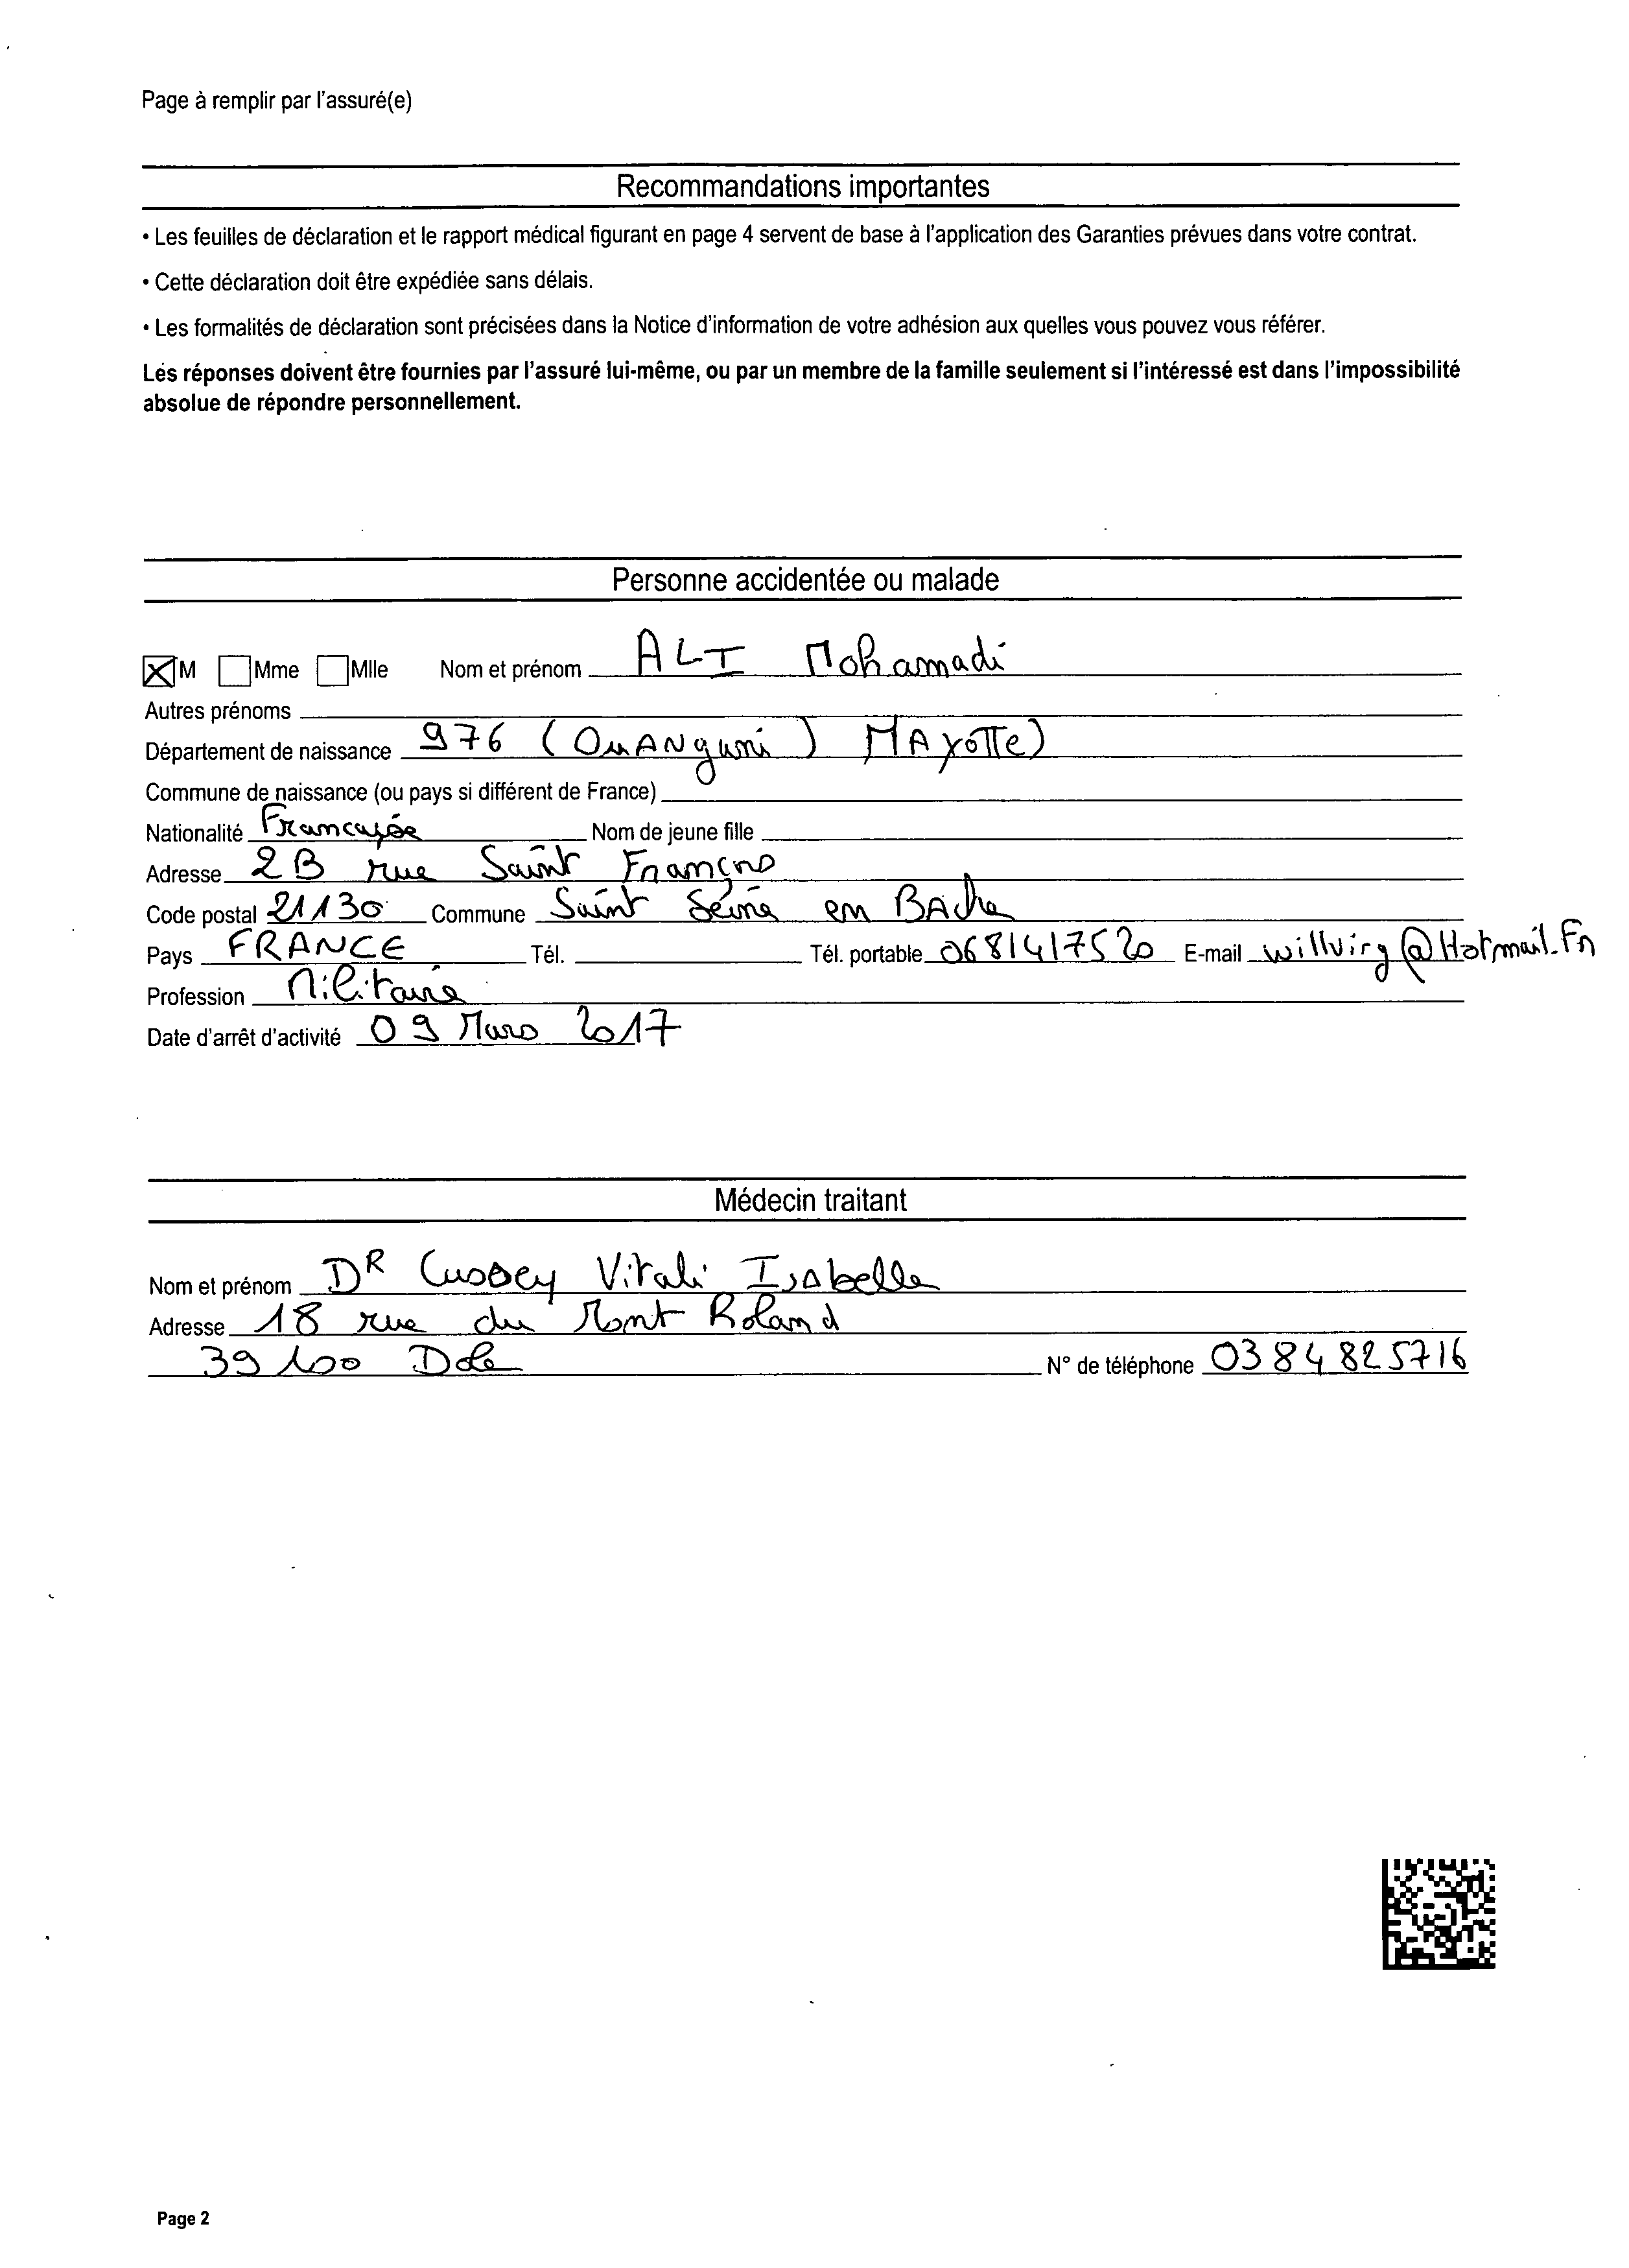 Page à remplir par l'assuré(e)
Recommandations importantes
• Les feuilles de déclaration et le rapport médical figurant en page 4 servent de base à l'application des Garanties prévues dans votre contrat.
• Cette déclaration doit être expédiée sans délais.
• Les formalités de déclaration sont précisées dans la Notice d'information de votre adhésion aux quelles vous pouvez vous référer.
Les réponses doivent être fournies par l'assuré lui-même, ou par un membre de la famille seulement si l'intéressé est dans l'impossibilité
absolue de répondre personnellement.
Personne accidentée ou malade
M Mme Mlle Nom et prénom ALI Mohamadi
Autres prénoms
Département de naissance 976 (OuANguni) MAyoTTe)
Commune de naissance (ou pays si différent de France)
Nationalité Nom de jeune fille
Adresse 2 B rue Saint François
Code postal 21130 Commune Saint Seine en BAche
Pays FRANCE Tél. Tél. portable 0681417520 E-mail willvirg@Hotmail.Fr
Profession Militaire
Date d'arrêt d'activité 09 Mars 2017
Médecin traitant
Nom et prénom DR Cussey Vitali Isabelle
Adresse 18 rue du Mont Roland
39100 Dole N° de téléphone 0384825716
Page 2